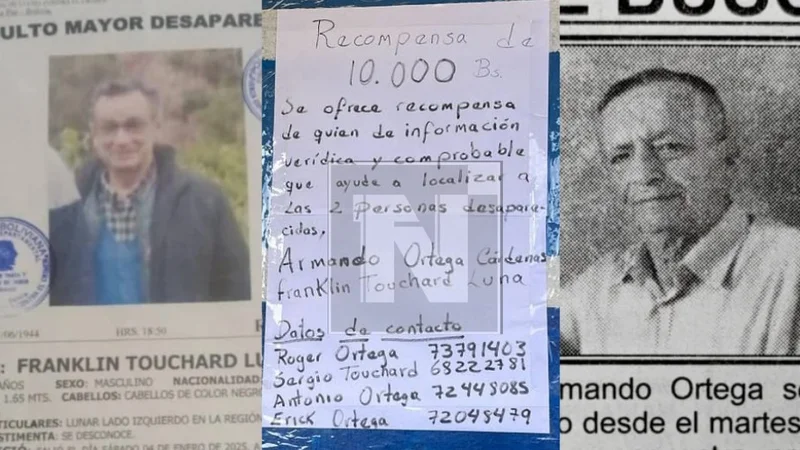 ULTO MAYOR DESAPARE
/06/1944
HRS: 18:50
: FRANKLIN TOUCHARD LU
AÑOS SEXO: MASCULINO NACIONALIDAD
1.65 MTS. CABELLOS: CABELLOS DE COLOR NEGR
TICULARES: LUNAR LADO IZQUIERDO EN LA REGIÓN
STIMENTA: SE DESCONOCE.
SÁBADO 04 DE ENERO DE 2025
Recompensa de
10.000 Bs.
Se ofrece recompensa
de quien de información
verídica y comprobable
que ayude a localizar a
las 2 personas desapare-
cidas.
Armando Ortega Cárdenas
Franklin Touchard Luna
Datos de contacto
Roger Ortega 73791403
Sergio Touchard 68222781
Antonio Ortega 72448085
Erick Ortega 72048479
N
mando Ortega se
o desde el martes